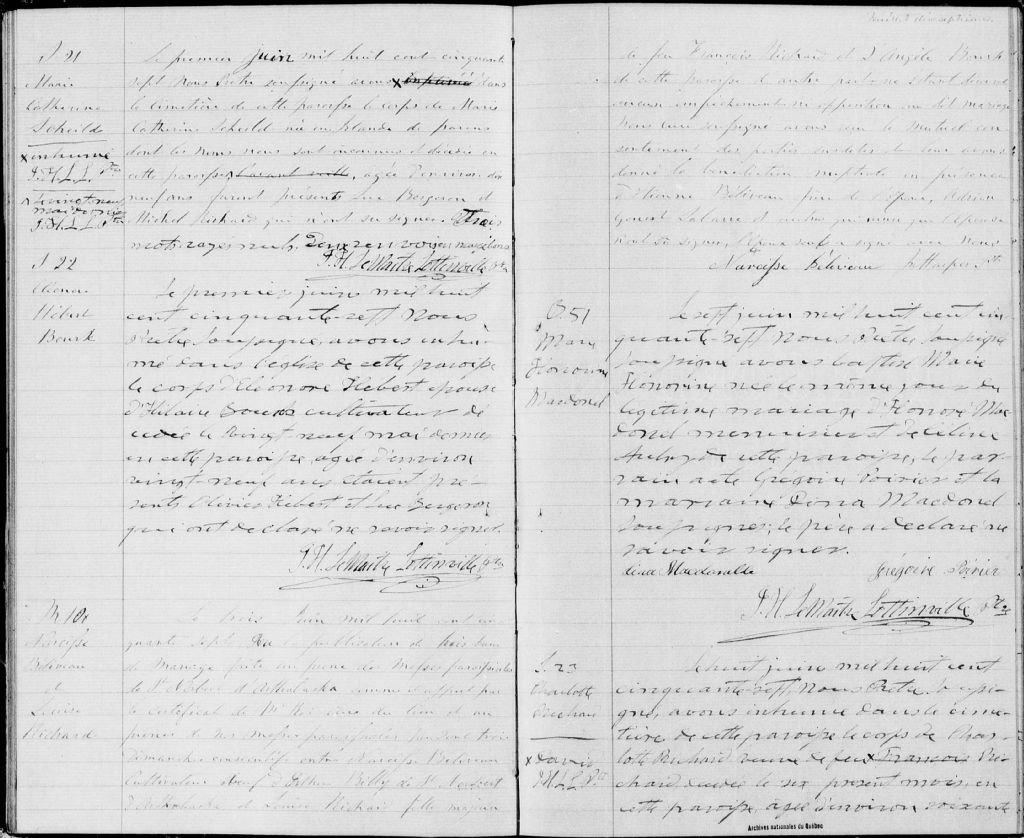 S 21
Marie
Catherine
Scheilde
x inhumé
J.H.L.L. Ptre
x vingt neuf
mai dernier
J.H.L.L. Ptre
Le premier juin mil huit cent cinquante
sept Nous Prêtre soussigné avons x inhumé dans
le cimetière de cette paroisse le corps de Marie
Catherine Scheild née en Irlande de parens
dont les noms nous sont inconnus et décédée en
cette paroisse, agée d'environ dix
neuf ans furent présents Luc Bergeron et
Michel Richard qui n'ont su signer. Trois
mots rayés nuls. Deux renvois en marge bons
J. H. LeMaitre Lottinville Ptre
S 22
Eléonore
Hébert
Bourk
Le premier juin mil huit
cent cinquante-sept Nous
Prêtre soussigné, avons inhu-
mé dans l'église de cette paroisse
le corps d'Eléonore Hebert épouse
d'Hilaire Bourk cultivateur dé
cédée le vingt-neuf mai dernier
en cette paroisse, agée d'environ
vingt-neuf ans étaient pré-
sents Olivier Hebert et Luc Bergeron
qui ont déclaré ne savoir signer.
J. H. LeMaitre Lottinville Ptre
M 10
Narcisse
Béliveau
et
Louise
Richard
Le trois Juin mil huit cent cin
quante sept, Vu la publication de trois bans
de mariage faite au prone des Messes paroissiales
de St Norbert d'Arthabaska comme il appert par
le certificat de Mr Roi curé du lieu et au
prone de nos messes paroissiales pendant trois
dimanches consécutifs entre Narcisse Béliveau
Cultivateur veuf d'Esther Billy de St Norbert
d'Arthabaska et Louise Richard fille majeure
de feu François Richard et d'Angèle Bourk
de cette paroisse d'autre part ne s'étant découvert
aucun empêchement ni opposition au dit mariage
Nous curé soussigné avons reçu le mutuel con
sentement des parties susdites et leur avons
donné la bénédiction nuptiale en présence
d'Etienne Béliveau frère de l'époux, Adrien
n'ont su signer, l'époux seul a signé avec Nous
Narcisse Béliveau
B. 51
Marie
Honorine
Macdonel
Le sept juin mil huit cent cin-
quante-sept Nous Prêtre soussigné
soussigné avons baptisé Marie
Honorine née le même jour du
légitime mariage d'Honoré Mac
donel menuisier et de Céline
Aubry de cette paroisse, le par-
rain a été Grégoire Poirier et la
marraine Dina Macdonel
soussignés; le père a déclaré ne
savoir signer.
dina Macdonalde Grégoire Poirier
J. H. LeMaitre Lottinville Ptre
S. 23
Charlotte
Richard
x David
J.H.L.L. Ptre
Le huit juin mil huit cent
cinquante-sept, Nous Prêtre soussi-
gné, avons inhumé dans le cime-
tière de cette paroisse le corps de Char-
lotte Richard veuve de feu x François Ri-
chard décédée le six présent mois, en
cette paroisse, agée d'environ soixante
Archives nationales du Québec